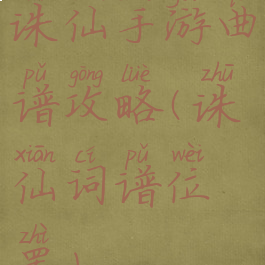 诛仙手游曲
pǔ gōng lüè zhū
谱攻略(诛
xiān cí pǔ wèi
仙词谱位
zhì
置)